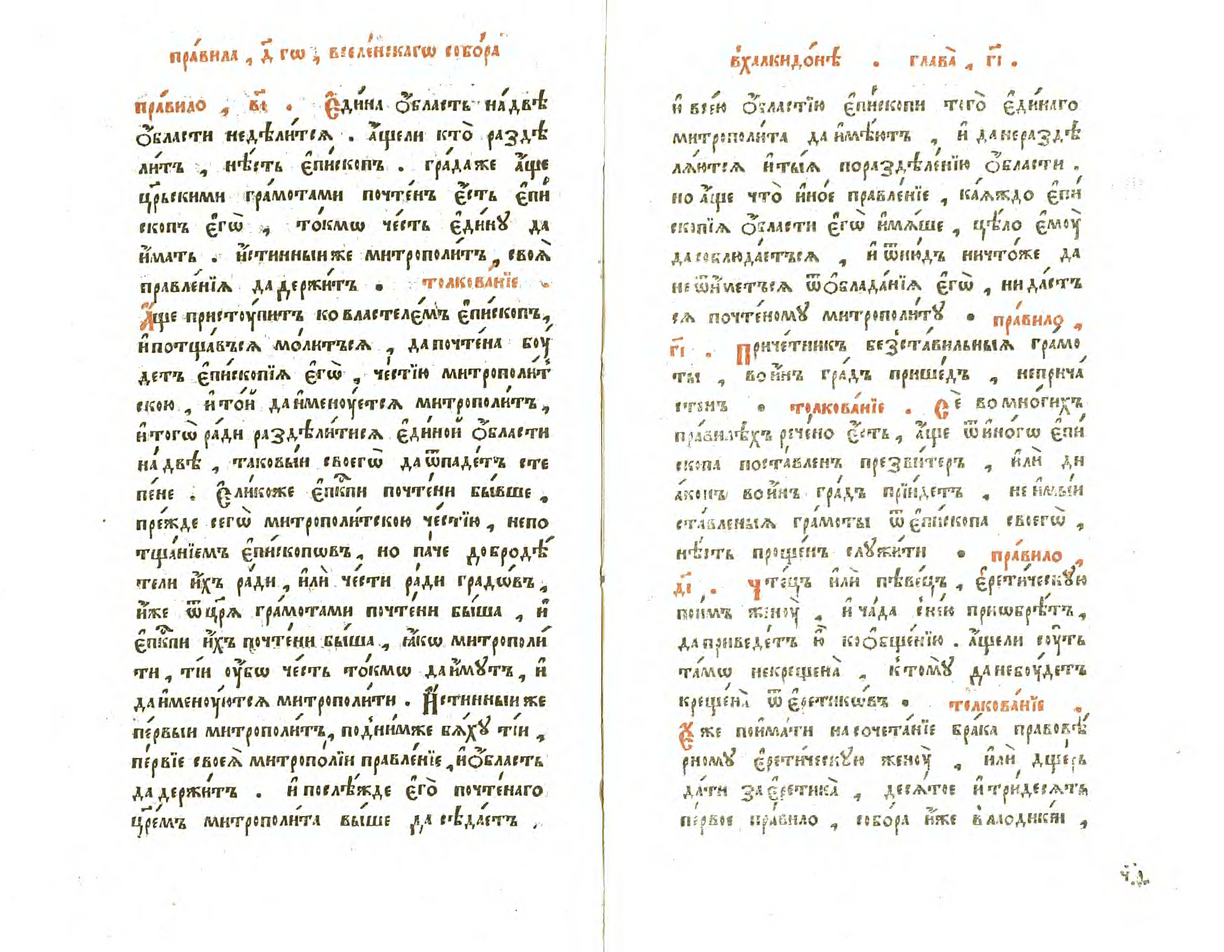 пра́вила , д҃ гѡ , вселе́нскагѡ собо́ра
пра́вило , в҃і . Є҆ди́на ѻ҆́бласть на́двѣ
ѻ҆́бласти недѣ́лится . а҆́щели кто̀ раздѣ
ли́тъ , нѣ́сть є҆пи́скопъ . гра́даже а҆́ще
цр҃ьскими гра́мотами почте́нъ є҆́сть є҆пи́
скопъ є҆гѡ̀ , то́кмѡ че́сть є҆ди́нꙋ да
и҆́мать . и҆́стинныиже митрополи́тъ , своѧ̀
правле́нїѧ дадержи́тъ . толкова́нїе .
А҆́ще пристоу́питъ ковласте́лемъ є҆пи́скопъ,
и҆потща́въсѧ мо́литъсѧ , дапочте́на боу́
детъ є҆писко́пїѧ є҆гѡ̀ , че́стїю митрополи́т
скою , и҆то́й даимену́етсѧ митрополи́тъ ,
и҆тогѡ̀ ра́ди раздѣли́тисѧ є҆ди́ной ѻ҆́бласти
на́двѣ , таковы́и своегѡ̀ даѿпаде́тъ сте
пе́не . Е҆ли́коже є҆пⷭ҇кпи почте́ни бы́вше ,
пре́жде сегѡ̀ митрополи́тскою че́стїю , непо
тща́нїемъ є҆пи́скопѡвъ , но па́че доброде́
тели и҆́хъ ра́ди , и҆лѝ че́сти ра́ди градѡ́въ ,
и҆́же ѿцр҃ѧ̀ гра́мотами почте́ни бы́ша , и҆
є҆пⷭ҇кпи и҆́хъ почте́ни бы́ша , ꙗ҆́кѡ митрополи́
ти , ті́и оу҆́бѡ че́сть то́кмѡ даи́мꙋтъ , и҆
даимену́ютсѧ митрополи́ти . И҆́стинныи же
пе́рвыи митрополи́тъ, подни́мже бѧ́хꙋ ті́и ,
пе́рвїе своеѧ̀ митропо́лїи правле́нїе , и҆ѻ҆́бласть
дадержи́тъ . и҆послѣ́жде є҆го̀ почте́наго
цр҃е́мъ митрополи́та вы́ше да сѣда́етъ .
в҆халкидо́нѣ . глава̀ , г҃і .
и҆ все́ю ѻ҆́бластїю є҆пи́скопи того̀ є҆ди́наго
митрополи́та даи҆мѣ́ютъ , и҆ данераздѣ
лѧ́ютсѧ и҆ты́ѧ пораздѣле́нїю ѻ҆́бласти .
но а҆́ще что̀ и҆но́е правле́нїе , ка́ѧждо є҆пи
ско́пїѧ ѻ҆́бласти є҆гѡ̀ имѧ́ше , цѣ́ло є҆моу̀
дасоблюда́етьсѧ , и҆ ѿню́дъ ничто́же да
неѿи́метьсѧ ѿѻблада́нїѧ є҆гѡ̀ , нида́стъ
сѧ почте́номꙋ митрополи́тꙋ . пра́вило ,
г҃і . Приче́тникъ безста́вильныѧ гра́мо
ты , во и҆́нъ гра́дъ прише́дъ , неприча́
стенъ . толкова́нїе . Се́ вомно́гихъ
пра́вилѣхъ рече́но є҆́сть , а҆́ще ѿино́гѡ є҆пи́
скопа поста́вленъ презви́теръ , и҆лѝ ди
а́конъ во и҆́нъ гра́дъ прїи́детъ , неи҆мы́и
ста́вленыѧ гра́моты ѿ є҆пи́скопа своегѡ̀ ,
нѣ́сть проще́нъ слꙋжи́ти . пра́вило ,
д҃і . Чте́цъ и҆лѝ пѣве́цъ , є҆рети́ческꙋю
пои́мъ женоу̀ , и҆ ча́да с не́ю приѡбрѣ́тъ ,
даприведе́тъ ѝ коѻ҆бще́нїю . а҆́щели соу́ть
та́мѡ некреще́на̀ , ктомꙋ̀ данебоу́детъ
креще́на̀ ѿ є҆рети́кѡвъ . толкова́нїе .
Е҆́же пои́мати насочета́нїе бра́ка правовѣ́
рномꙋ є҆рети́ческꙋю женоу̀ , и҆лѝ дще́рь
да́ти зає҆ретика̀ , десѧ́тое и҆тридесѧ́ть
пе́рвое пра́вило , собо́ра и҆́же влаодикі́и ,